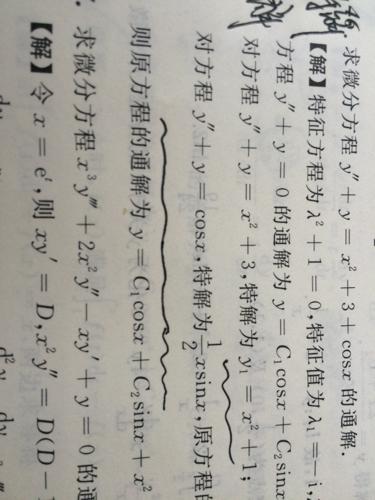 求微分方程 y″ + y = x² + 3 + cosx 的通解.
【解】特征方程为 λ² + 1 = 0,特征值为 λ₁ = −i,
方程 y″ + y = 0 的通解为 y = C₁cosx + C₂sinx
对方程 y″ + y = x² + 3,特解为 y₁ = x² + 1;
对方程 y″ + y = cosx,特解为 1/2 xsinx,原方程的
则原方程的通解为 y = C₁cosx + C₂sinx + x²
求微分方程 x³y‴ + 2x²y″ − xy′ + y = 0 的通
【解】令 x = eᵗ,则 xy′ = D,x²y″ = D(D −